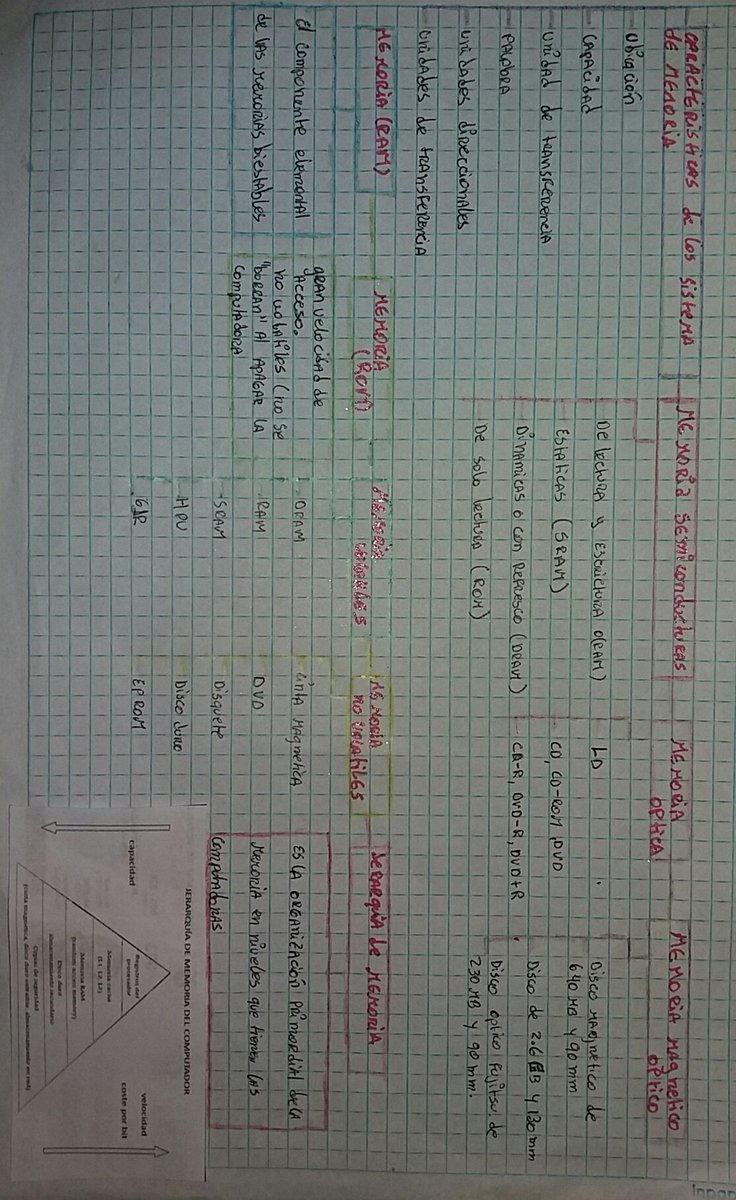 CARACTÉRÍSTICAS de los SISTEMA
DE MEMORIA
Ubicación
CAPACIDAD
UNIDAD de TRANSFERENCIA
PALABRA
UNIDADES direccionales
UNIDADES DE TRANSFERENCIA
MEMORIA SEMICONDUCTURAS
De lectura y ESCRICTURA O(RAM)
ESTATICAS (SRAM)
DINAMICAS o con REFRESCO (DRAM)
De solo lectura (ROM)
MEMORIA
OPTICA
LD
CD, CD-ROM, DVD
CD-R, DVD-R, DVD+R
MEMORIA MAGNETICO
OPTICO
Disco MAGNETICO de
640 MB y 90 mm
Disco de 2.6 GB y 130 mm
Disco optico Fujitsu. de
230 MB y 90 mm.
MEMORIA (RAM)
El componente elemental
de las memorias biestables
MEMORIA
(ROM)
gran velocidad de
Acceso.
no volatiles (no se
"borran" Al APAGAR LA
computadora
MEMORIA
DRAM
RAM
SRAM
MEMORIA
NO VOLATILES
Cinta MAGNETICA
DVD
Disquete
Disco duro
EPROM
JERARQUIA de MEMORIA
ES LA ORGANIZACIÓN PRIMORDIAL DE LA
Memoria en niveles que tienen las
computadoras
JERARQUÍA DE MEMORIA DEL COMPUTADOR
capacidad
velocidad
coste por bit
Registros del
procesador
Memoria cache
(L1, L2, L3)
Memoria RAM
(random access memory)
Disco duro
almacenamiento secundario
Copias de seguridad